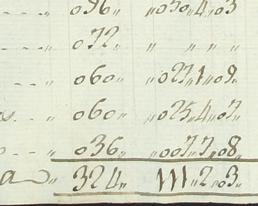 096,, ,,050,,4,,03
- - - 072,, ,, ,, ,, ,,
- - - 060,, ,,027,,1,,09
s. - - 060,, ,,025,,4,,07
- - - 036,, ,,007,,7,,08
a 324,, 111,,2,,03,,